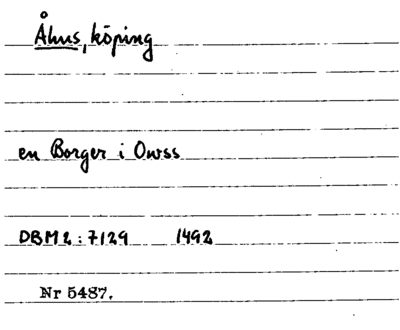 Åhus, köping
en Borger i Owss
DBM 2:7129 1492
Nr 5487.